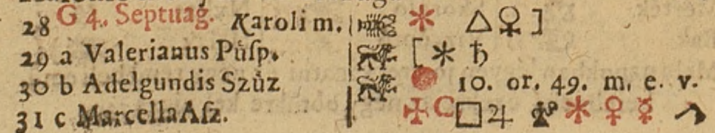 28 G 4. Septuag. Karoli m. ⚹ △ ♀ ]
29 a Valerianus Pùſp. [ ⚹ ♄
30 b Adelgundis Szùz 10. or. 49. m. e. v.
31 c Marcella Aſz. □ ♃ ⚹ ♀ ☿